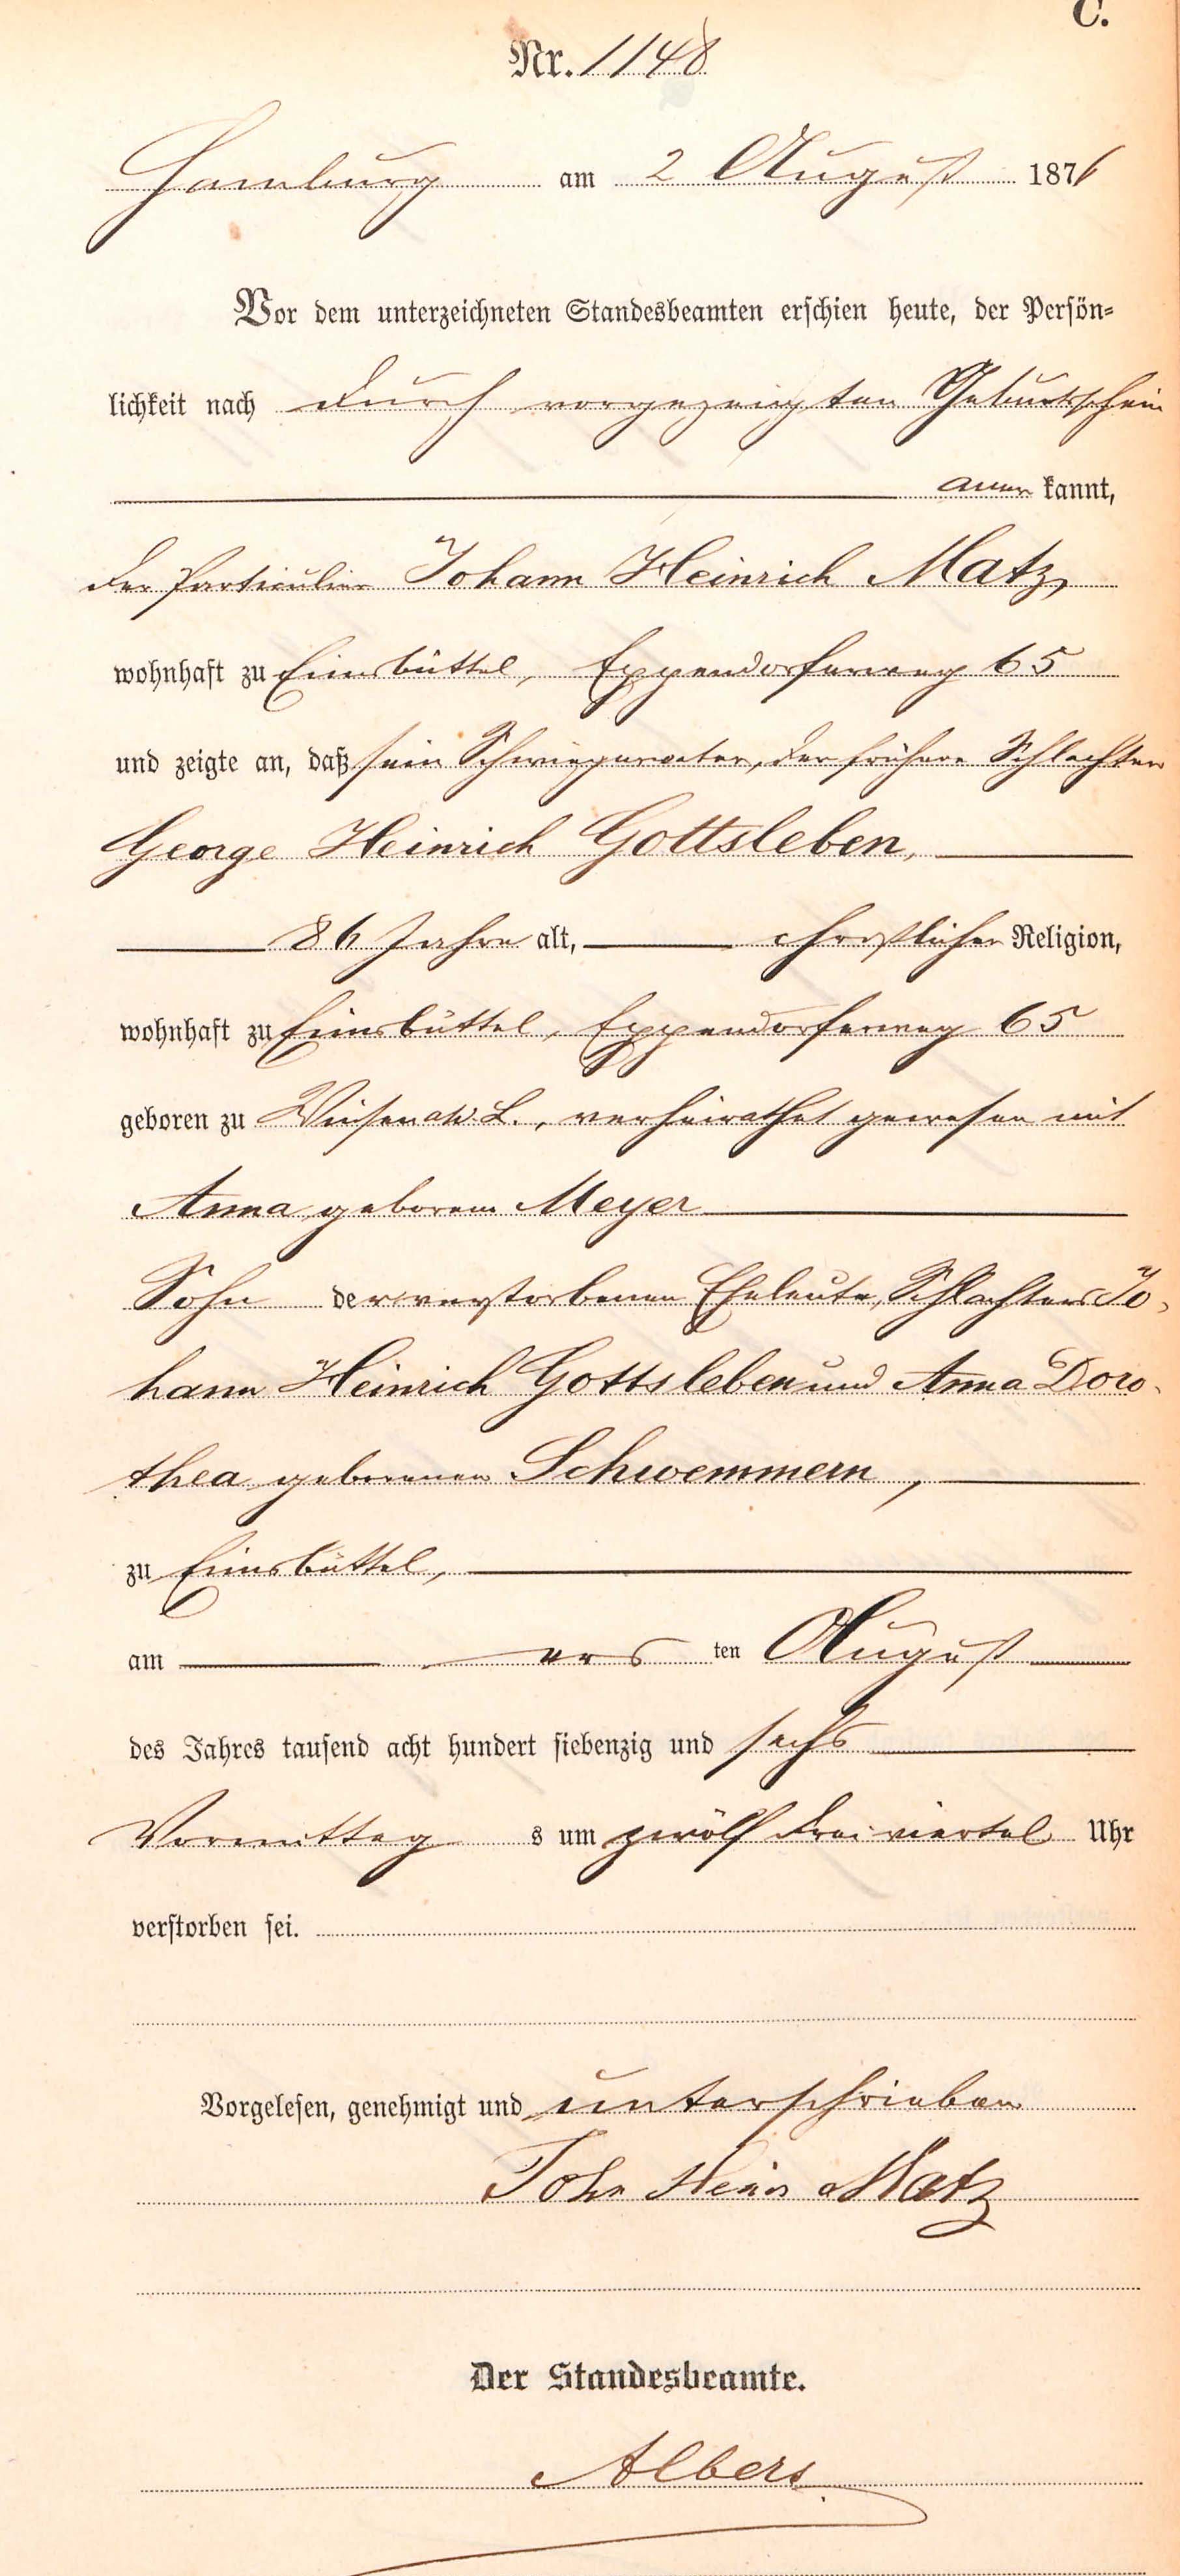 C.
Nr. 1148
Hamburg am 2 August 1876
Vor dem unterzeichneten Standesbeamten erschien heute, der Persön-
lichkeit nach durch vorgezeigten Geburtsschein
aner kannt,
der Particulier Johann Heinrich Matz,
wohnhaft zu Eimsbüttel, Eppendorferweg 65
und zeigte an, daß sein Schwiegervater, der frühere Schlachter
George Heinrich Gottsleben,
86 Jahre alt, christlicher Religion,
wohnhaft zu Eimsbüttel, Eppendorferweg 65
geboren zu Winsen a/d. L., verheirathet gewesen mit
Anna geborene Meyer
Sohn der verstorbenen Eheleute, Schlachters Jo-
hann Heinrich Gottsleben und Anna Doro-
thea geborenen Schwemmern,
zu Eimsbüttel,
am ers ten August
des Jahres tausend acht hundert siebenzig und sechs
Vormittag s um zwölf drei viertel Uhr
verstorben sei.
Vorgelesen, genehmigt und unterschrieben
Joh. Heinr Matz
Der Standesbeamte.
Albers